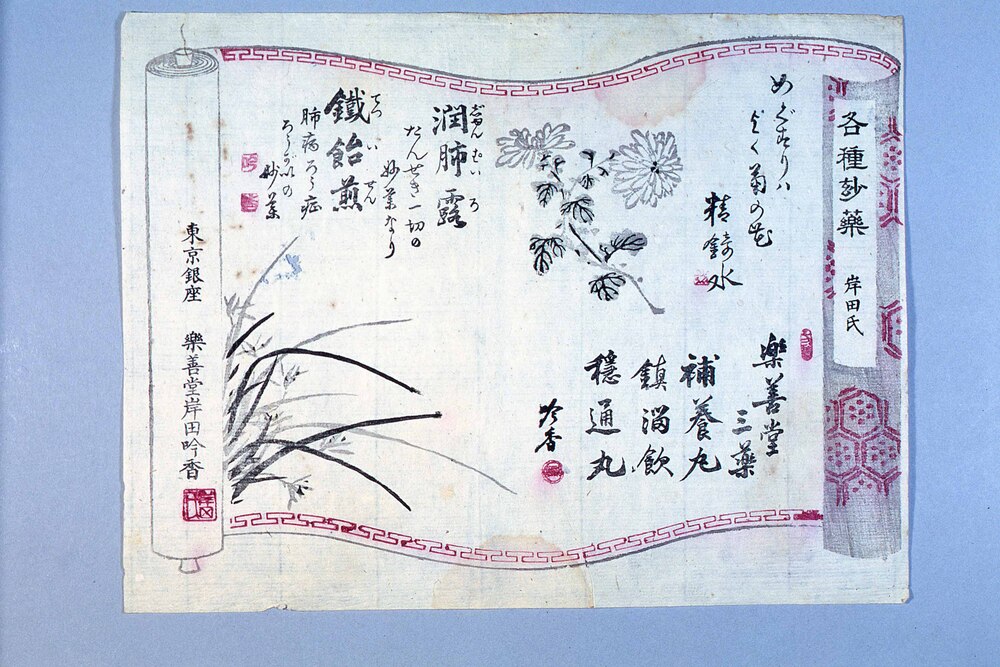 各種妙藥 岸田氏
めぐすりハ
よく菊の花
精錡水
樂善堂
三藥
補養丸
鎮溜飲
穩通丸
吟香
潤肺露
じゆんはいろ
たんせき一切の
妙藥なり
鐵飴煎
てついせん
肺病ろう症
妙藥
東京銀座 樂善堂岸田吟香